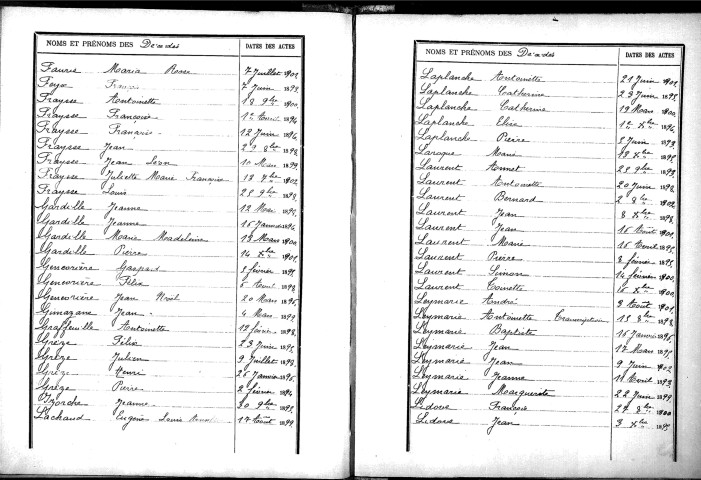 NOMS ET PRÉNOMS DES Décédés DATES DES ACTES
Faurie Maria Rose 7 Juillet 1902
Faye 7 Juin 1899
Fraysse Antoinette 18 9bre 1900
Fraysse Françoise 1er Avril 1896
Fraysse François 12 Juin 1894
Fraysse Jean 29 8bre 1898
Fraysse Jean Léon 10 Mars 1899
Fraysse Juliette Marie Françoise 18 7bre 1902
Fraysse Louis 25 9bre 1898
Gardille Jeanne 12 Mai 1895
Gardille Jeanne 15 Janvier 1894
Gardille Marie Madeleine 18 Mars 1900
Gardille Pierre 14 Xbre 1901
Genevrière Gaspard février
Genevrière Félix 5 Août 1898
Genevrière Jean Noël 20 Mars 1896
Gimazane Jean 4 Mars 1899
Graffeuille Antoinette 12 février 1898
Grèze Félix 23 Juin 1895
Grèze Julien 9 Juillet 1898
Grèze Henri 25 Janvier 1896
Grèze Pierre 2 février 1894
Izorche Jeanne 30 9bre 1895
Lachaud Eugène Louis 17 Août 1899
NOMS ET PRÉNOMS DES Décédés DATES DES ACTES
Laplanche Antoinette 21 Juin 1901
Laplanche Catherine 23 Juin 1895
Laplanche Catherine 19 Mars 1900
Laplanche Elise 12 Xbre 1894
Laplanche Pierre 8 Juin 1898
Laroque Marie 18 Xbre 1895
Laurent Annet 25 9bre 1899
Laurent Antoinette 20 Juin 1898
Laurent Bernard 2 8bre 1902
Laurent Jean 8 Xbre 1898
Laurent Jean 16 Août 1901
Laurent Marie 15 Avril 1895
Laurent Pierre 8 février 1901
Laurent Simon 14 février 1900
Laurent Toinette 15 Xbre 1900
Leymarie André 9 Août 1901
Leymarie Antoinette Transcription 13 8bre 1898
Leymarie Baptiste 15 Janvier 1896
Leymarie Jean 17 Mars 1895
Leymarie Jean 9 Juin 1902
Leymarie Jeanne 11 Avril 1893
Leymarie Marguerite 22 Juin 1899
Lidove François 27 8bre 1900
Lidove Jean 3 Xbre 1895